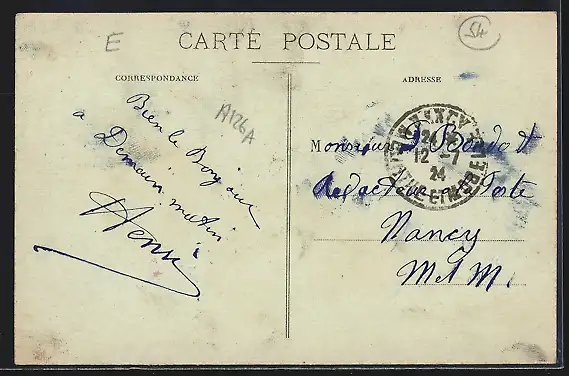 E
54
CARTE POSTALE
CORRESPONDANCE
ADRESSE
A126A
Bien le Bonjour
a Demain matin
Henri
Monsieur
Redacteur Poste
Nancy
M et M.
NANCY
12 -7
24